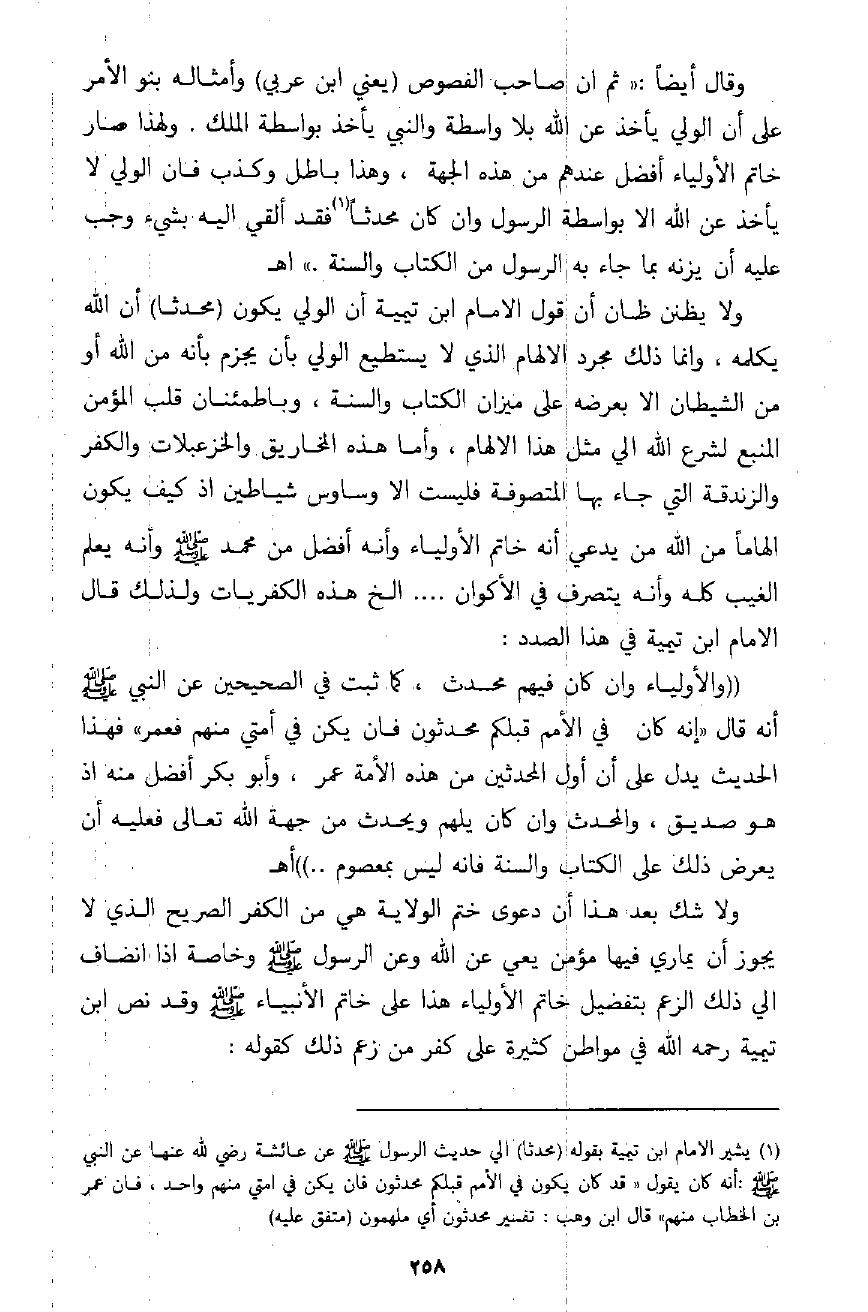 وقال أيضاً :« ثم ان صاحب الفصوص (يعني ابن عربي) وأمثاله بنو الأمر
على أن الولي يأخذ عن الله بلا واسطة والنبي يأخذ بواسطة الملك . ولهذا صار
خاتم الأولياء أفضل عندهم من هذه الجهة ، وهذا باطل وكذب فان الولي لا
يأخذ عن الله الا بواسطة الرسول وان كان محدثاً(١)فقد ألقي اليه بشيء وجب
عليه أن يزنه بما جاء به الرسول من الكتاب والسنة .» اهـ
ولا يظنن ظان أن قول الامام ابن تيمية أن الولي يكون (محدثا) أن الله
يكلمه ، وانما ذلك مجرد الالهام الذي لا يستطيع الولي بأن يجزم بأنه من الله أو
من الشيطان الا بعرضه على ميزان الكتاب والسنة ، وباطمئنان قلب المؤمن
المنبع لشرع الله الي مثل هذا الالهام ، وأما هذه المخاريق والخزعبلات والكفر
والزندقة التي جاء بها المتصوفة فليست الا وساوس شياطين اذ كيف يكون
الهاماً من الله من يدعي أنه خاتم الأولياء وأنه أفضل من محمد ﷺ وأنه يعلم
الغيب كله وأنه يتصرف في الأكوان .... الخ هذه الكفريات ولذلك قال
الامام ابن تيمية في هذا الصدد :
((والأولياء وان كان فيهم محدث ، كما ثبت في الصحيحين عن النبي ﷺ
أنه قال «إنه كان في الأمم قبلكم محدثون فان يكن في أمتي منهم فعمر» فهذا
الحديث يدل على أن أول المحدثين من هذه الأمة عمر ، وأبو بكر أفضل منه اذ
هو صديق ، والمحدث وان كان يلهم ويحدث من جهة الله تعالى فعليه أن
يعرض ذلك على الكتاب والسنة فانه ليس بمعصوم ..))أهـ
ولا شك بعد هذا أن دعوى ختم الولاية هي من الكفر الصريح الذي لا
يجوز أن يماري فيها مؤمن يعي عن الله وعن الرسول ﷺ وخاصة اذا انضاف
الي ذلك الزعم بتفضيل خاتم الأولياء هذا على خاتم الأنبياء ﷺ وقد نص ابن
تيمية رحمه الله في مواطن كثيرة على كفر من زعم ذلك كقوله :
(١) يشير الامام ابن تيمية بقوله (محدثا) الي حديث الرسول ﷺ عن عائشة رضي لله عنها عن النبي
ﷺ :أنه كان يقول « قد كان يكون في الأمم قبلكم محدثون فان يكن في امتي منهم واحد ، فان عمر
بن الخطاب منهم» قال ابن وهب : تفسير محدثون أي ملهمون (متفق عليه)
٢٥٨